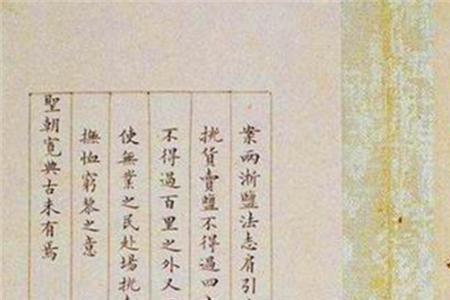 案兩浙鹽法志肩引
挑貨賣鹽不得過四
不得過百里之外又
使無業之民赴場挑
撫恤窮黎之意
聖朝寬典古未有焉